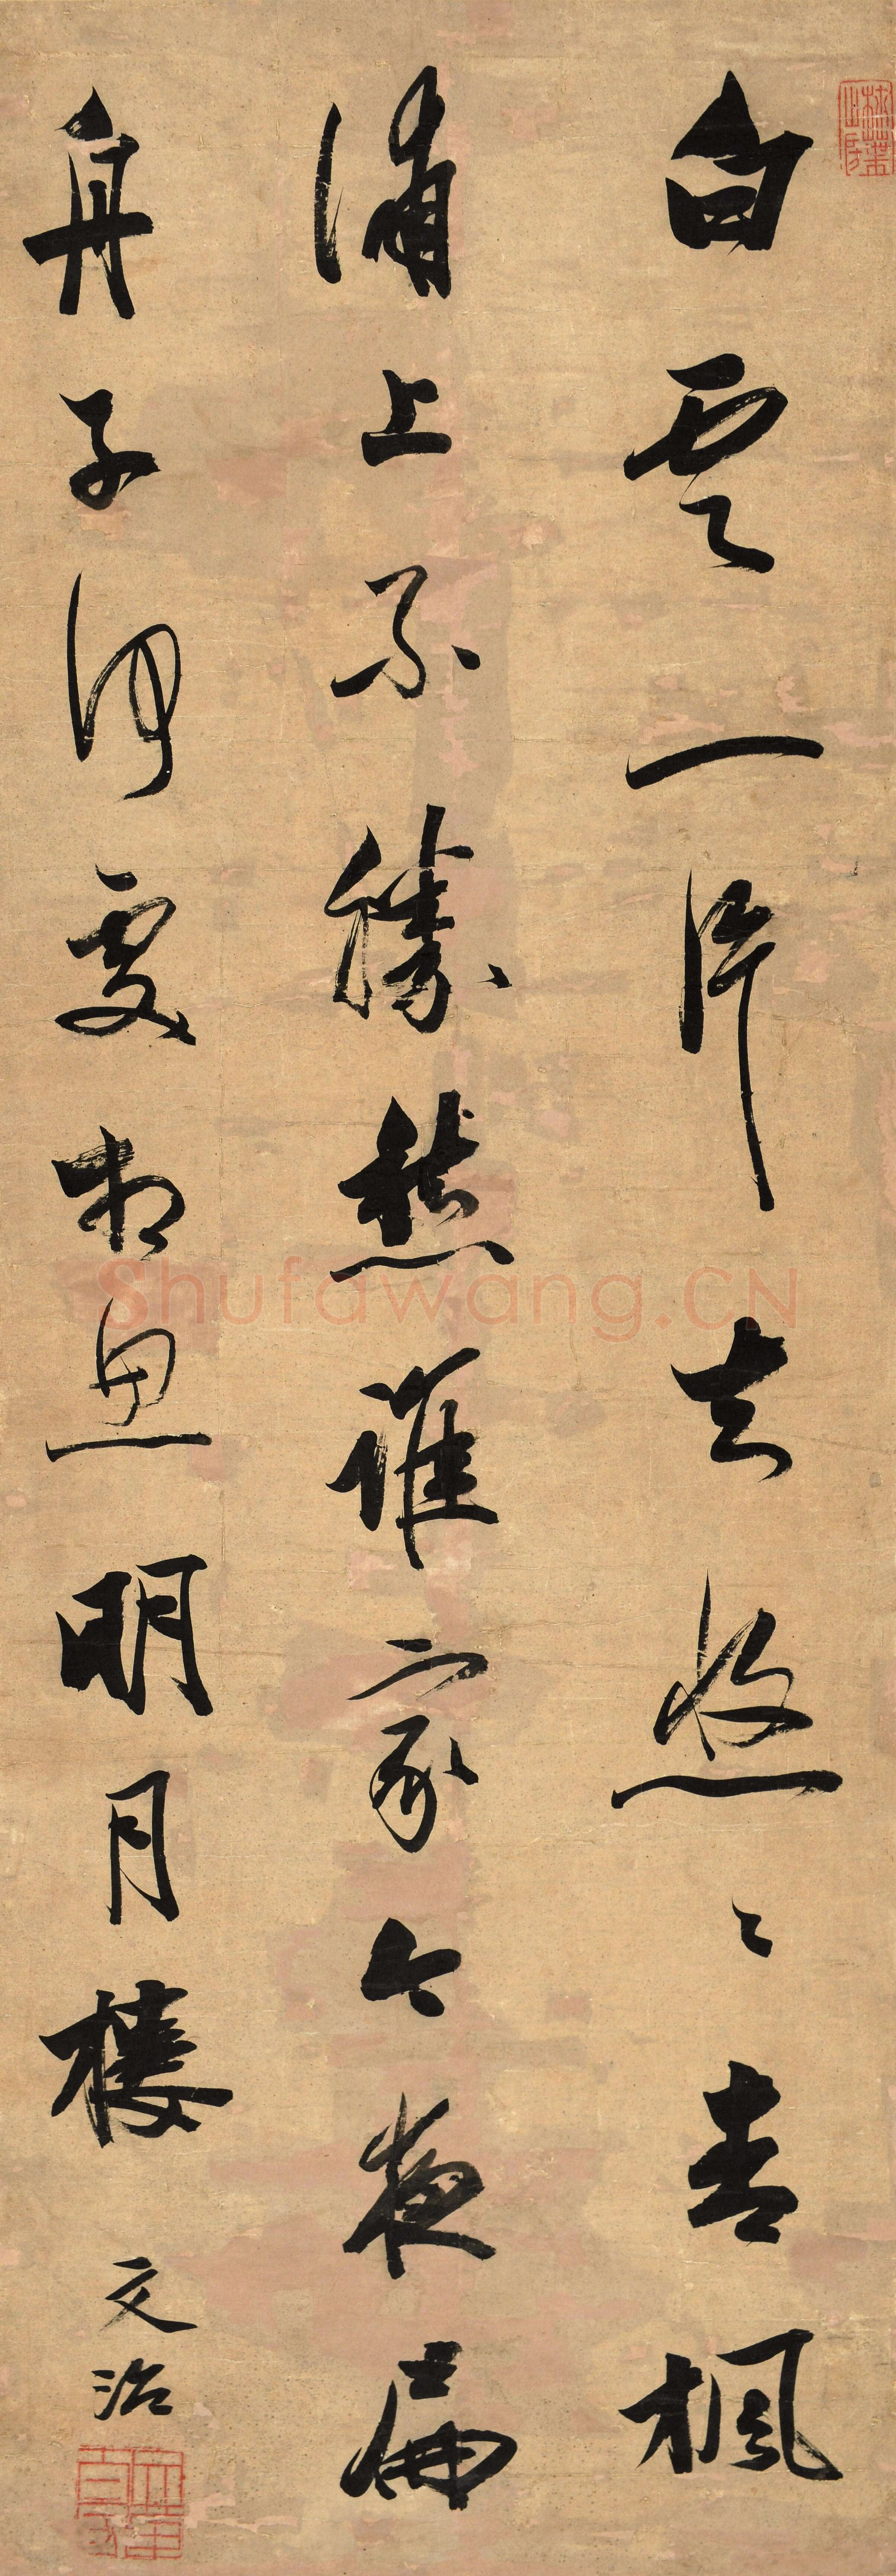 白雲一片去悠〻青楓
浦上不勝愁誰家今夜扁
舟子何處相思明月樓
文治
Shufawang.CN